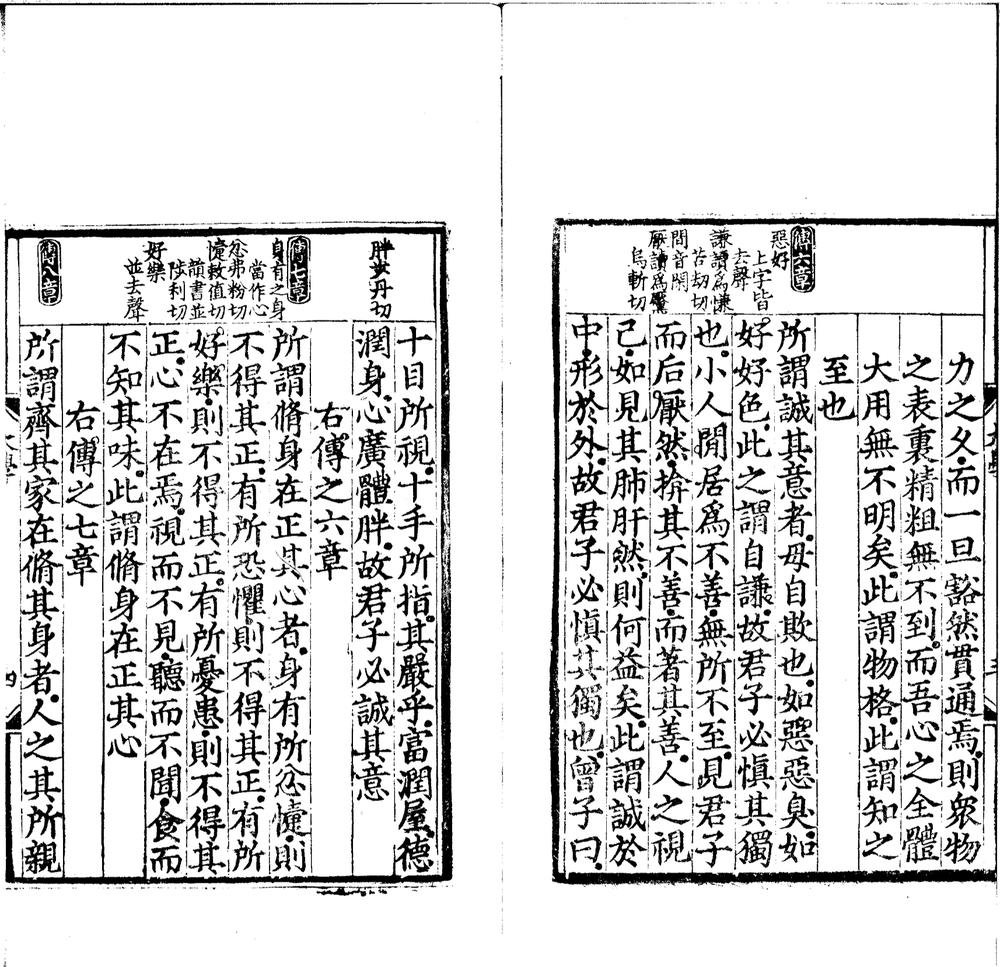 力之久而一旦豁然貫通焉則衆物
之表裏精粗無不到而吾心之全體
大用無不明矣此謂物格此謂知之
至也
傳六章
惡好
上字皆
去聲
謙讀爲慊
苦劫切
閒音閑
厭讀爲黶
烏斬切
所謂誠其意者毋自欺也如惡惡臭如
好好色此之謂自謙故君子必慎其獨
也小人閒居爲不善無所不至見君子
而后厭然揜其不善而著其善人之視
己如見其肺肝然則何益矣此謂誠於
中形於外故君子必慎其獨也曾子曰
胖步丹切
十目所視十手所指其嚴乎富潤屋德
潤身心廣體胖故君子必誠其意
右傳之六章
傳七章
身有之身
當作心
忿弗粉切
懥敕值切
讀書並
陟利切
好樂
並去聲
所謂脩身在正其心者身有所忿懥則
不得其正有所恐懼則不得其正有所
好樂則不得其正有所憂患則不得其
正心不在焉視而不見聽而不聞食而
不知其味此謂脩身在正其心
右傳之七章
傳八章
所謂齊其家在脩其身者人之其所親
大學
四